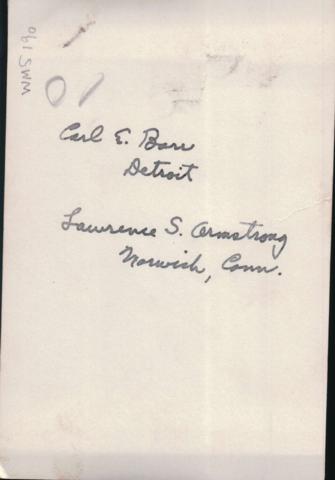 WMS 190
Carl E. Barr
Detroit
Lawrence S. Armstrong
Norwich, Conn.